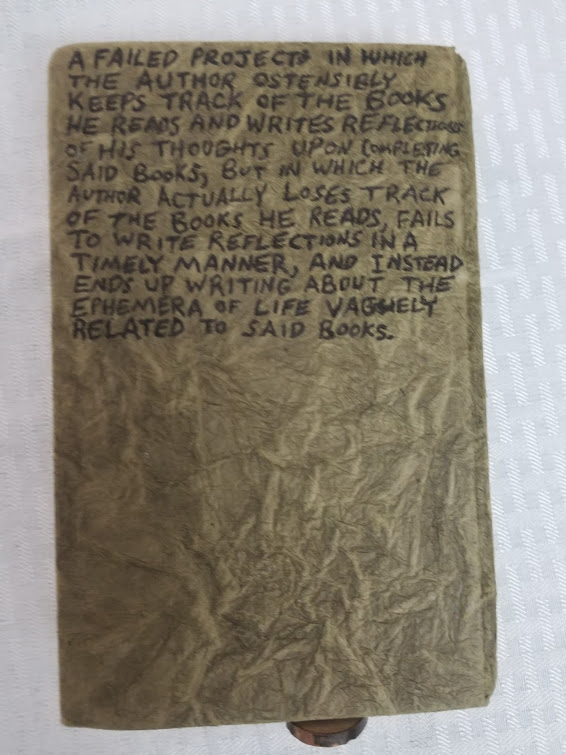 A FAILED PROJECT IN WHICH
THE AUTHOR OSTENSIBLY
KEEPS TRACK OF THE BOOKS
HE READS AND WRITES REFLECTIONS
OF HIS THOUGHTS UPON COMPLETING
SAID BOOKS, BUT IN WHICH THE
AUTHOR ACTUALLY LOSES TRACK
OF THE BOOKS HE READS, FAILS
TO WRITE REFLECTIONS IN A
TIMELY MANNER, AND INSTEAD
ENDS UP WRITING ABOUT THE
EPHEMERA OF LIFE VAGUELY
RELATED TO SAID BOOKS.